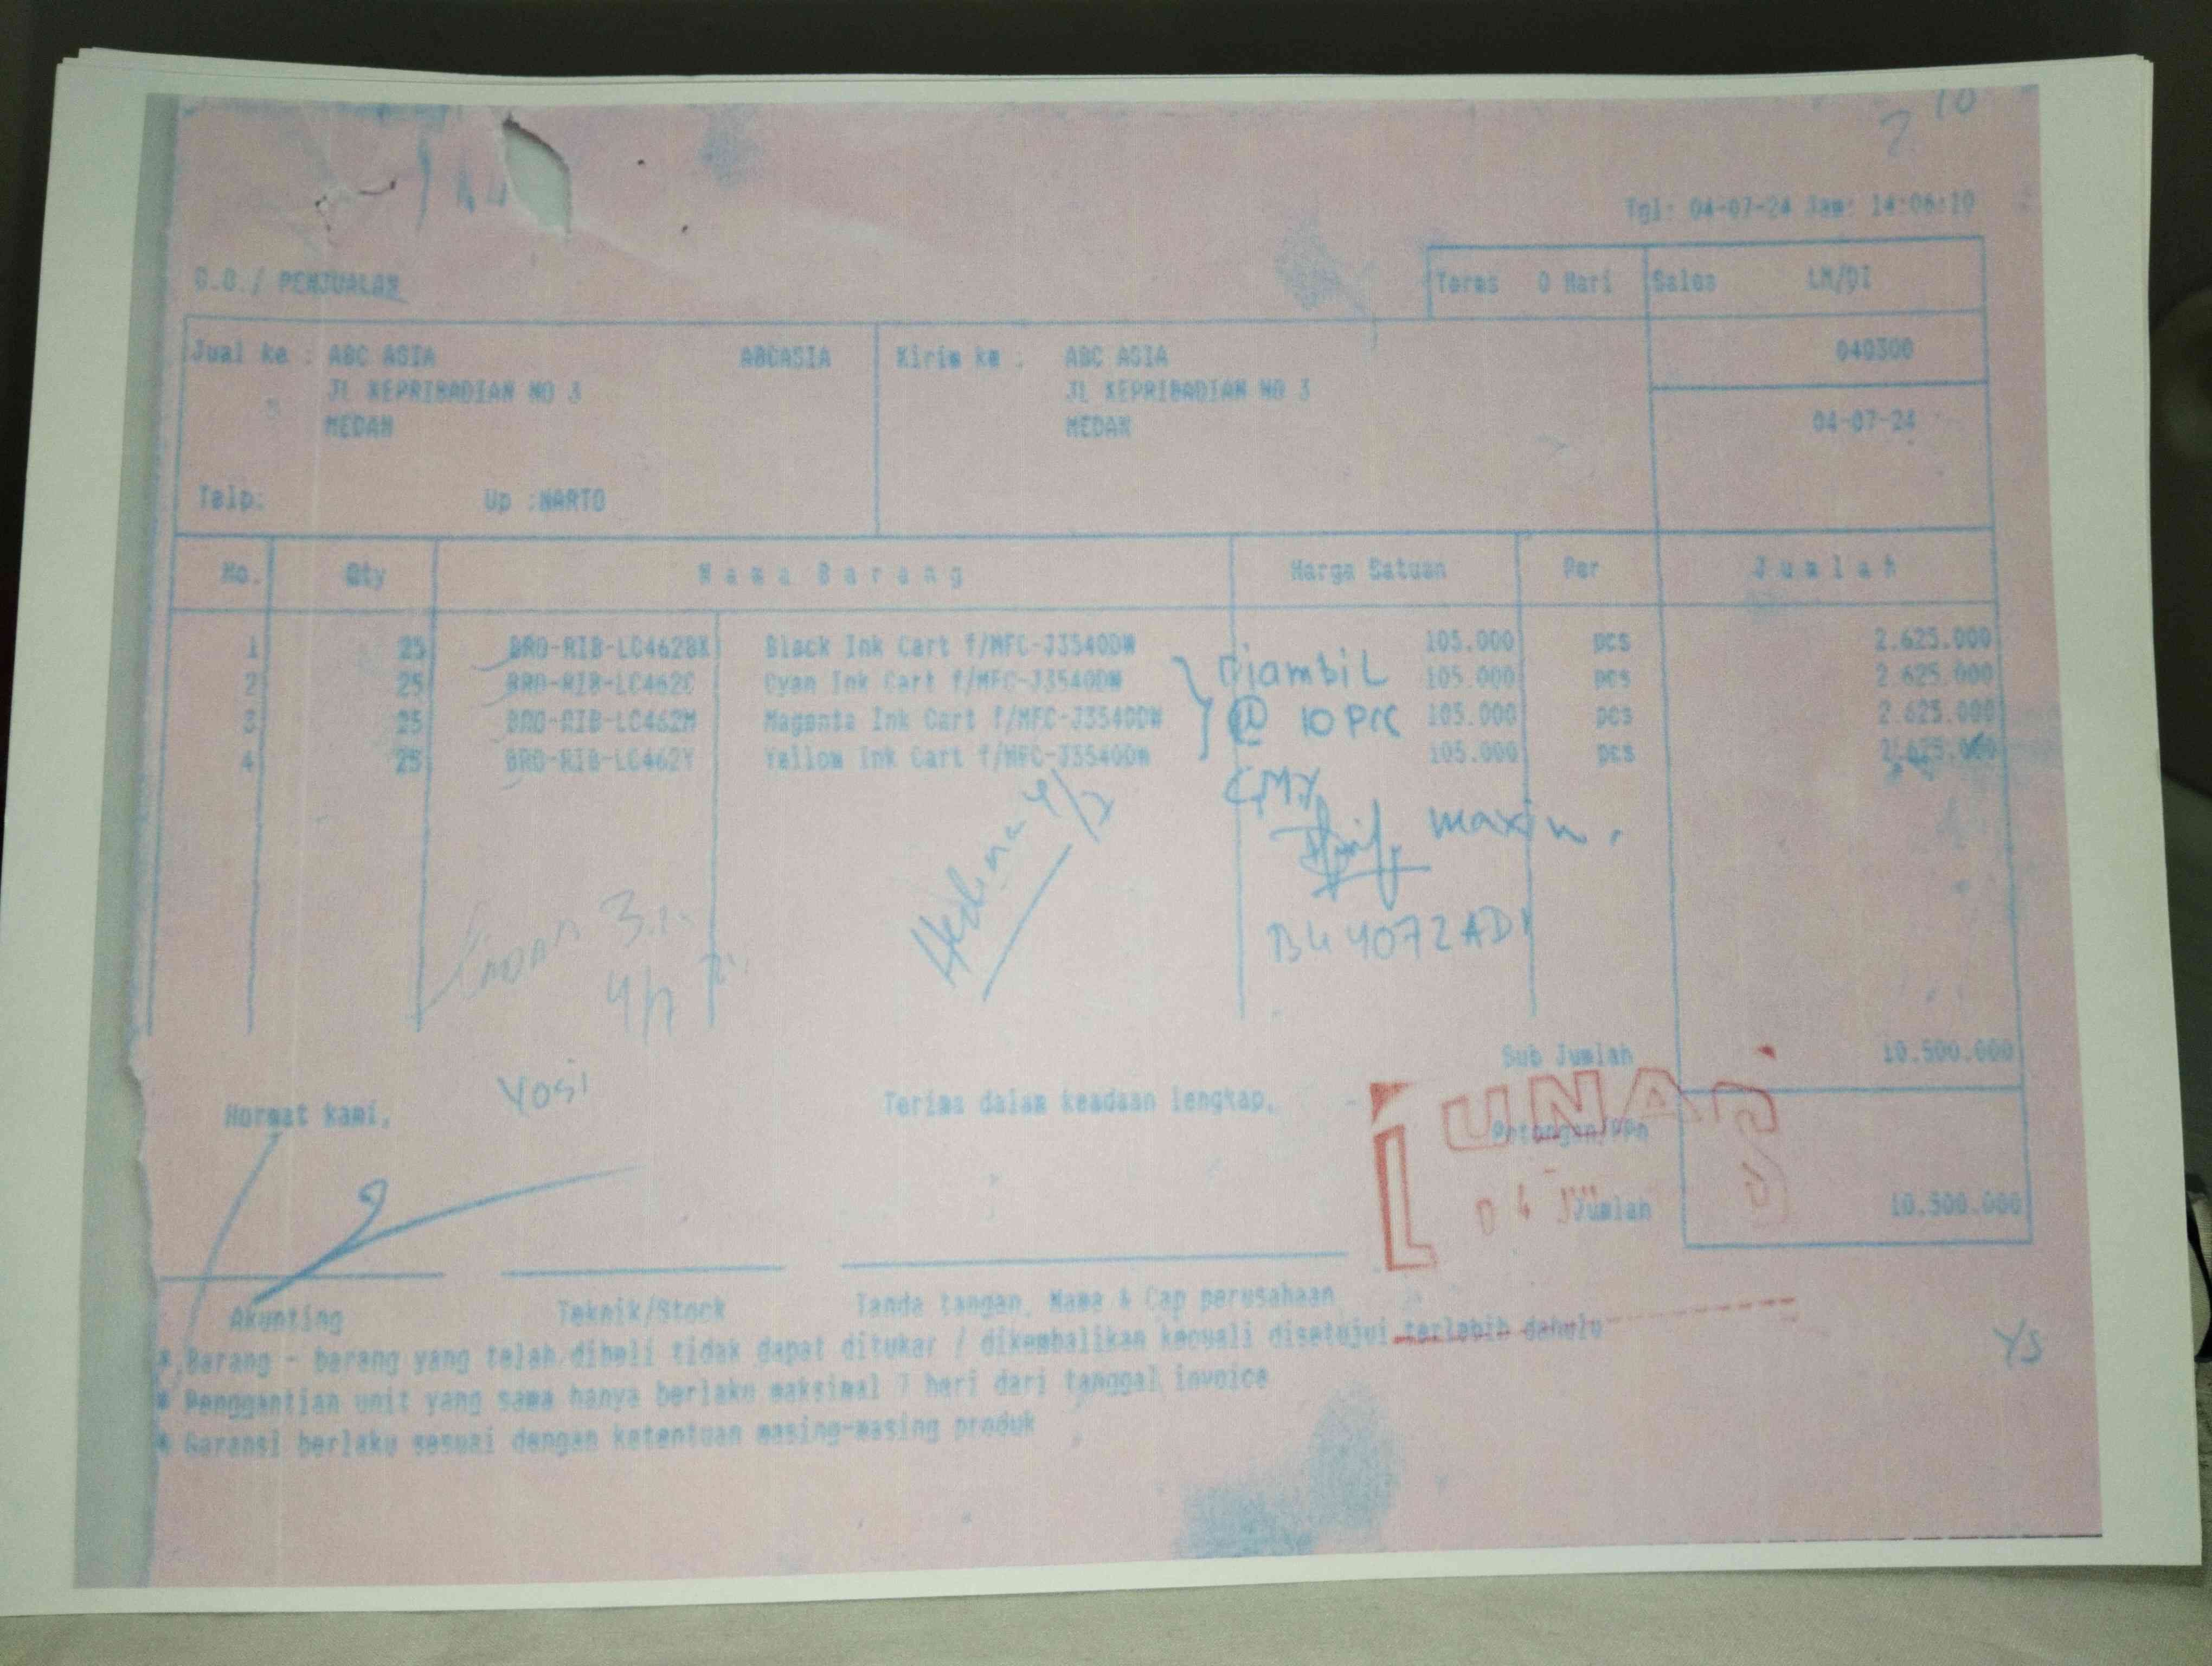 10
2
Tgl: 04-07-24 Jam: 14:06:10
/ PENJUALAN
Terms 0 Hari Sales LM/DI
Jual ke : ABC ASIA ABCASIA Kirim ke : ABC ASIA 040300
JL KEPRIBADIAN NO 3 JL KEPRIBADIAN NO 3
MEDAN MEDAN 04-07-24
Telp: Up :NARTO
No. Qty Nama Barang Harga Satuan Per Jumlah
1 25 BRO-RIB-LC462BK Black Ink Cart f/MFC-J3540DW 105.000 pcs 2.625.000
2 25 BRO-RIB-LC462C Cyan Ink Cart f/MFC-J3540DW 105.000 pcs 2.625.000
3 25 BRO-RIB-LC462M Magenta Ink Cart f/MFC-J3540DW 105.000 pcs 2.625.000
4 25 BRO-RIB-LC462Y Yellow Ink Cart f/MFC-J3540DW 105.000 pcs 2.625.000
Diambil
@ 10 Pcs
CMY
maxim.
4/7
4/7
Sub Jumlah 10.500.000
Yosi
Hormat kami, Terima dalam keadaan lengkap,
LUNAS
Potongan/PPn
04
Jumlah 10.500.000
Akunting Teknik/Stock Tanda tangan, Nama & Cap perusahaan
* Barang - barang yang telah dibeli tidak dapat ditukar / dikembalikan kecuali disetujui terlebih dahulu
* Penggantian unit yang sama hanya berlaku maksimal 7 hari dari tanggal invoice
* Garansi berlaku sesuai dengan ketentuan masing-masing produk
YS